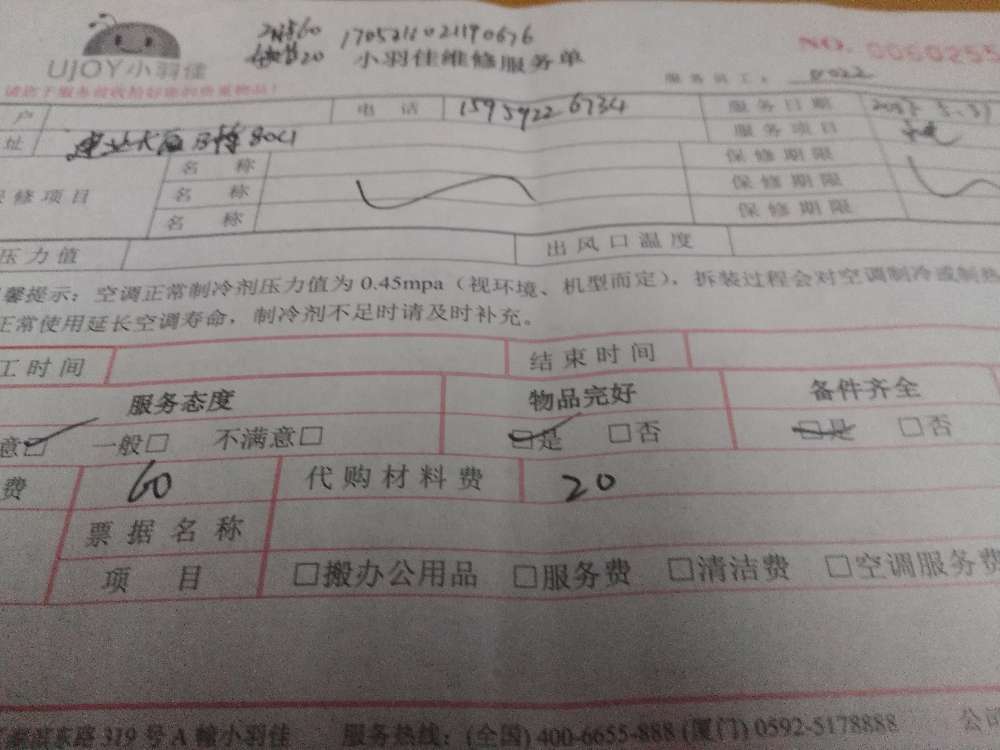 60 1705211021190676
20 小羽佳维修服务单 NO. 0060255
UJOY小羽佳
服务员工: 0022
户 电话 15959226734 服务日期
址 大 804 服务项目
名称 保修期限
保修项目 名称 保修期限
名称 保修期限
压力值 出风口温度
馨提示：空调正常制冷剂压力值为 0.45mpa（视环境、机型而定），拆装过程会对空调制冷或制热
正常使用延长空调寿命，制冷剂不足时请及时补充。
工时间 结束时间
服务态度 物品完好 备件齐全
意□ 一般□ 不满意□ □是 □否 □是 □否
费 60 代购材料费 20
票据名称
项目 □搬办公用品 □服务费 □清洁费 □空调服务费
东路 319 号 A 幢小羽佳 服务热线：(全国) 400-6655-888 (厦门) 0592-5178888 公司